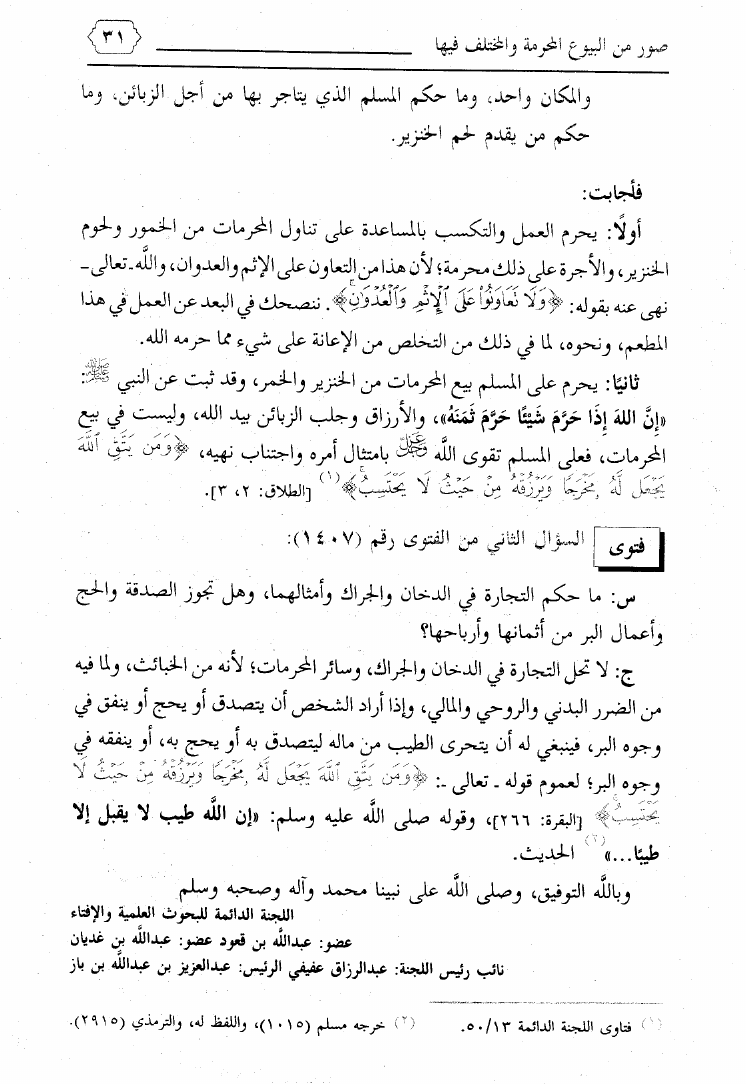 صور من البيوع المحرمة والمختلف فيها ٣١
والمكان واحد، وما حكم المسلم الذي يتاجر بها من أجل الزبائن، وما
حكم من يقدم لحم الخنزير.
فأجابت:
أولًا: يحرم العمل والتكسب بالمساعدة على تناول المحرمات من الخمور ولحوم
الخنزير، والأجرة على ذلك محرمة؛ لأن هذا من التعاون على الإثم والعدوان، واللَّه ـ تعالى ـ
نهى عنه بقوله: ﴿وَلَا نَعَاوَنُوا۟ عَلَى ٱلْإِثْمِ وَٱلْعُدْوَٰنِ﴾. ننصحك في البعد عن العمل في هذا
المطعم، ونحوه، لما في ذلك من التخلص من الإعانة على شيء مما حرمه الله.
ثانيًا: يحرم على المسلم بيع المحرمات من الخنزير والخمر، وقد ثبت عن النبي ﷺ:
«إِنَّ اللهَ إِذَا حَرَّمَ شَيْئًا حَرَّمَ ثَمَنَهُ»، والأرزاق وجلب الزبائن بيد الله، وليست في بيع
المحرمات، فعلى المسلم تقوى اللَّه عز وجل بامتثال أمره واجتناب نهيه، ﴿وَمَن يَتَّقِ ٱللَّهَ
يَجْعَل لَّهُۥ مَخْرَجًا وَيَرْزُقْهُ مِنْ حَيْثُ لَا يَحْتَسِبُ﴾(١) [الطلاق: ٢، ٣].
فتوى السؤال الثاني من الفتوى رقم (١٤٠٧):
س: ما حكم التجارة في الدخان والجراك وأمثالهما، وهل تجوز الصدقة والحج
وأعمال البر من أثمانها وأرباحها؟
ج: لا تحل التجارة في الدخان والجراك، وسائر المحرمات؛ لأنه من الخبائث، ولما فيه
من الضرر البدني والروحي والمالي، وإذا أراد الشخص أن يتصدق أو يحج أو ينفق في
وجوه البر، فينبغي له أن يتحرى الطيب من ماله ليتصدق به أو يحج به، أو ينفقه في
وجوه البر؛ لعموم قوله ـ تعالى ـ: ﴿وَمَن يَتَّقِ ٱللَّهَ يَجْعَل لَّهُۥ مَخْرَجًا وَيَرْزُقْهُ مِنْ حَيْثُ لَا
يَحْتَسِبُ﴾ [البقرة: ٢٦٦]، وقوله صلى الله عليه وسلم: «إن اللَّه طيب لا يقبل إلا
طيبًا...»(٢) الحديث.
وباللَّه التوفيق، وصلى اللَّه على نبينا محمد وآله وصحبه وسلم
اللجنة الدائمة للبحوث العلمية والإفتاء
عضو: عبداللَّه بن قعود عضو: عبداللَّه بن غديان
نائب رئيس اللجنة: عبدالرزاق عفيفي الرئيس: عبدالعزيز بن عبداللَّه بن باز
(١) فتاوى اللجنة الدائمة ٥٠/١٣. (٢) خرجه مسلم (١٠١٥)، واللفظ له، والترمذي (٢٩١٥).